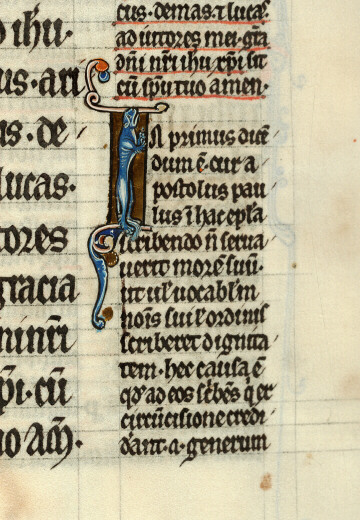 o ihu·
us·ari
us·de
lucas·
tores
gracia
ninr̄i
p̄i·cū
uo am̄·
cus·demas·⁊ lucas·
adiutores mei·gr̄a
dn̄i nr̄i ihu xp̄i sit
cū sp̄u tuo amen·
In primus dicē
dum ē·cur a
postolus pau
lus ī hac ep̄l'a
scribendo n̄ serua
uerit morē suū·
ut uel uocabl'm
nois sui uel ordinis
scriberet dignita
tem·hec causa ē
qd̓ ad eos sc̄bēs q er
circūcisione credi
dr̄ant·a·generum